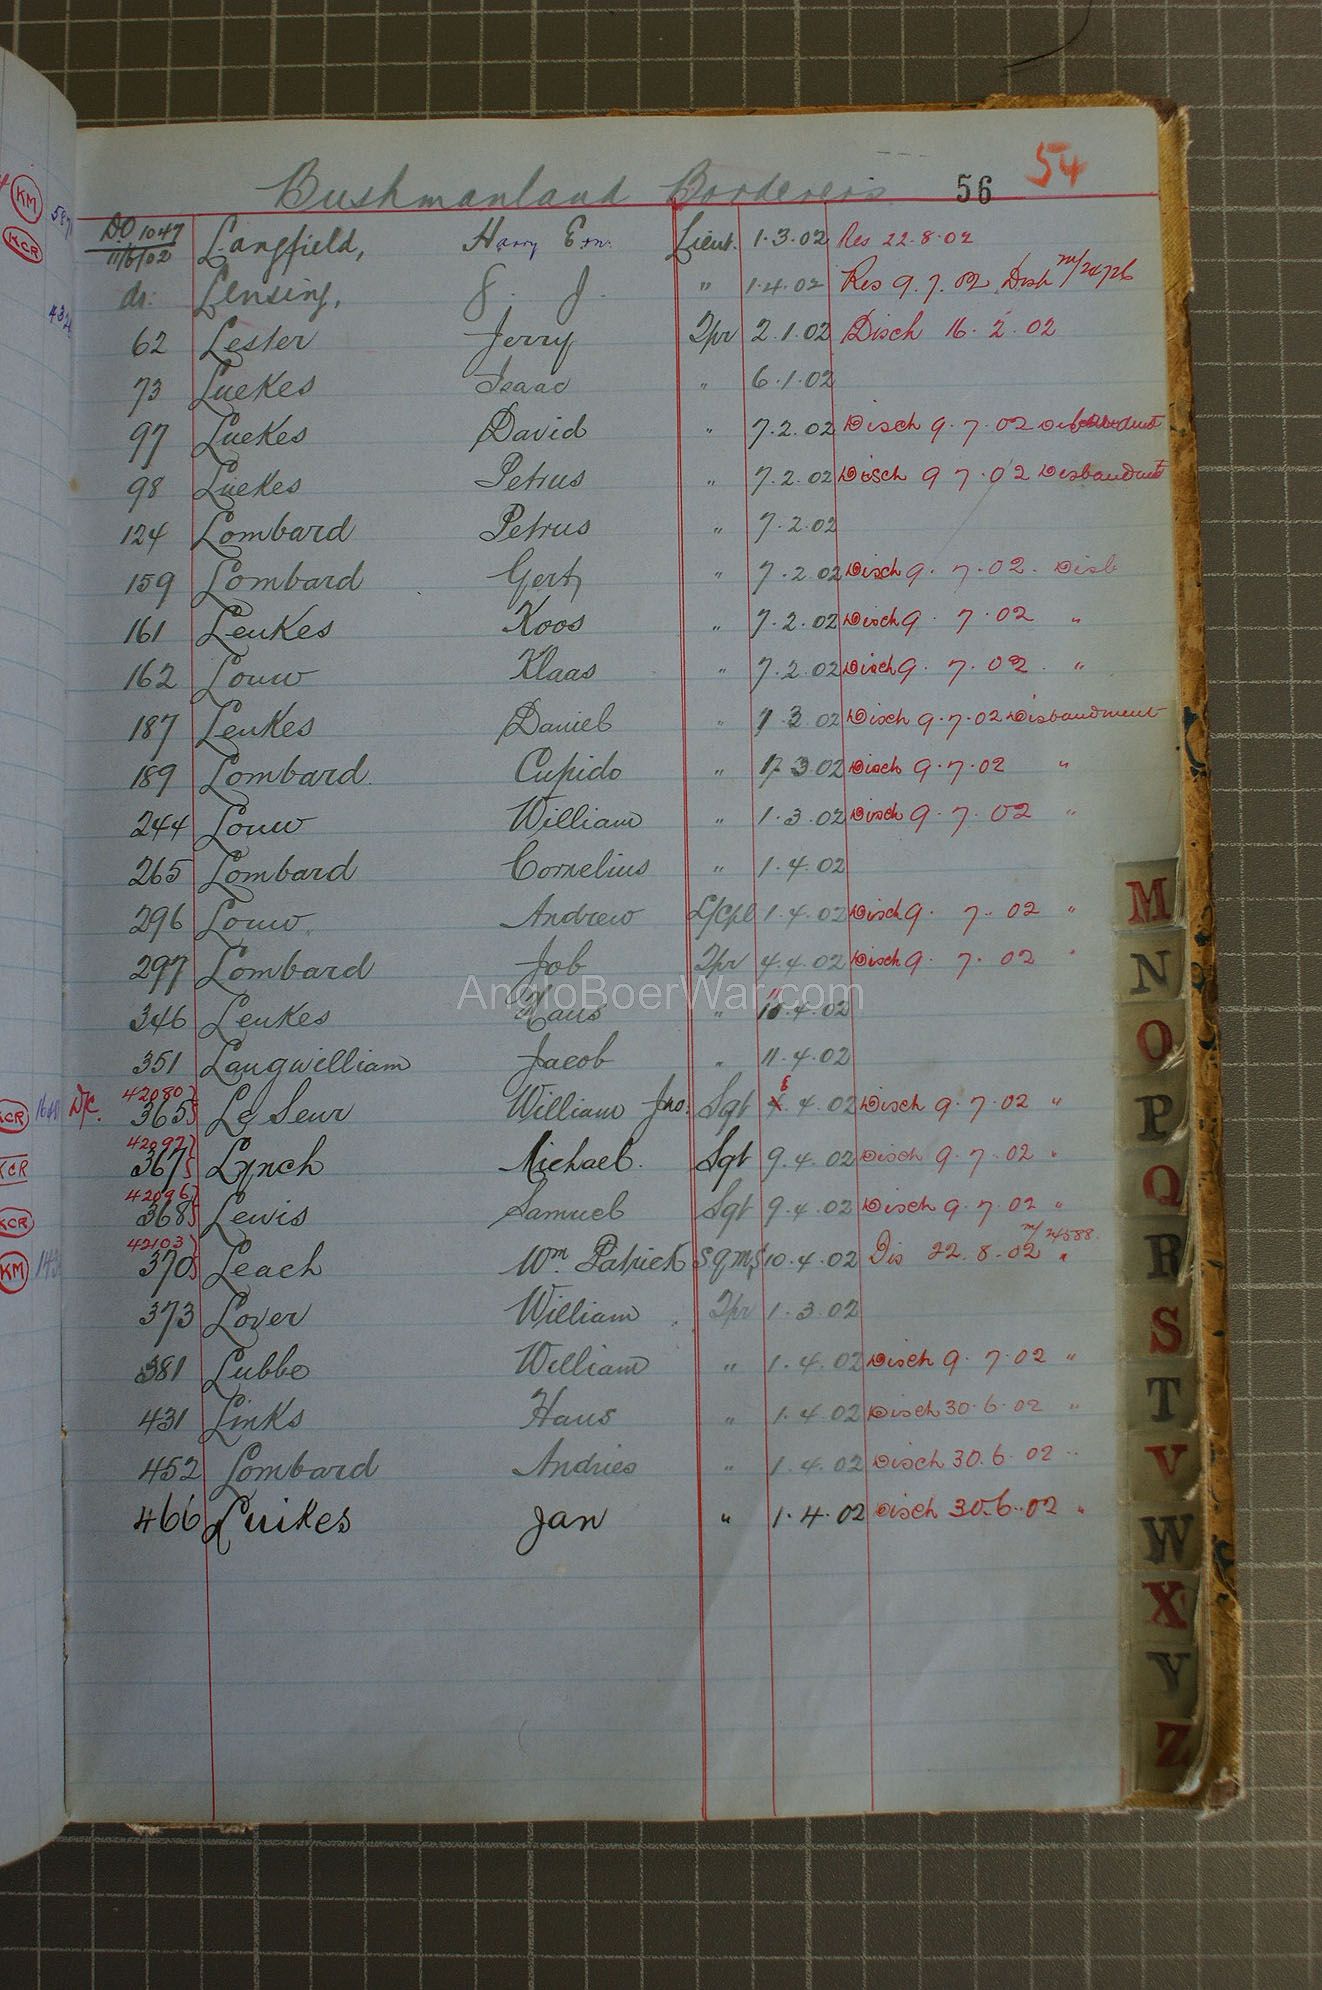 Bushmanland Borderers 56 54
DO 1047 11/6/02 Langfield, Harry Ern. Lieut. 1.3.02 Res 22.8.02
do. Lensing, J. Res 9.7.02
62 Lester Jerry Tpr 2.1.02 Disch 16.2.02
73 Luekes Isaac " 6.1.02
97 Luekes David " 7.2.02 Disch 9.7.02
98 Luekes Petrus " 7.2.02 Disch 9 7.02 Disbandmt
124 Lombard Petrus " 7.2.02
159 Lombard Gert " 7.2.02 Disch 9.7.02. Disb
161 Leukes Koos " 7.2.02 Disch 9.7.02 "
162 Louw Klaas " 7.2.02 Disch 9.7.02. "
187 Leukes Daniel " 3 02 Disch 9.7.02 Disbandment
189 Lombard. Cupido " 3 02 Disch 9.7.02 "
244 Louw William " 1.3.02 Disch 9.7.02 "
265 Lombard Cornelius " 1.4.02
296 Louw Andrew L/Cpl 1.4.02 Disch 9.7.02 "
297 Lombard Job Tpr 4.4.02 Disch 9.7.02 "
AngloBoerWar.com
346 Leukes Hans " 11 .4.02
351 Langwilliam Jacob " 11.4.02
KCR D/C. 42080 365 Le Seur William Jno. Sgt 4.02 Disch 9.7.02 "
KCR 42097 367 Lynch Michael. Sgt 9.4.02 Disch 9.7.02 "
KCR 42096 368 Lewis Samuel Sgt 9.4.02 Disch 9.7.02 "
KM 42103 370 Leach Wm Patrick SQMS 10.4.02 Dis 22.8.02 m/24588 "
373 Lover William Tpr 1.3.02
381 Lubbe William " 1.4.02 Disch 9.7.02 "
431 Links Hans " 1.4.02 Disch 30.6.02 "
452 Lombard Andries " 1.4.02 Disch 30.6.02 "
466 Luikes Jan " 1.4.02 Disch 30.6.02 "
KM
KCR
M
N
O
P
Q
R
S
T
V
W
X
Y
Z